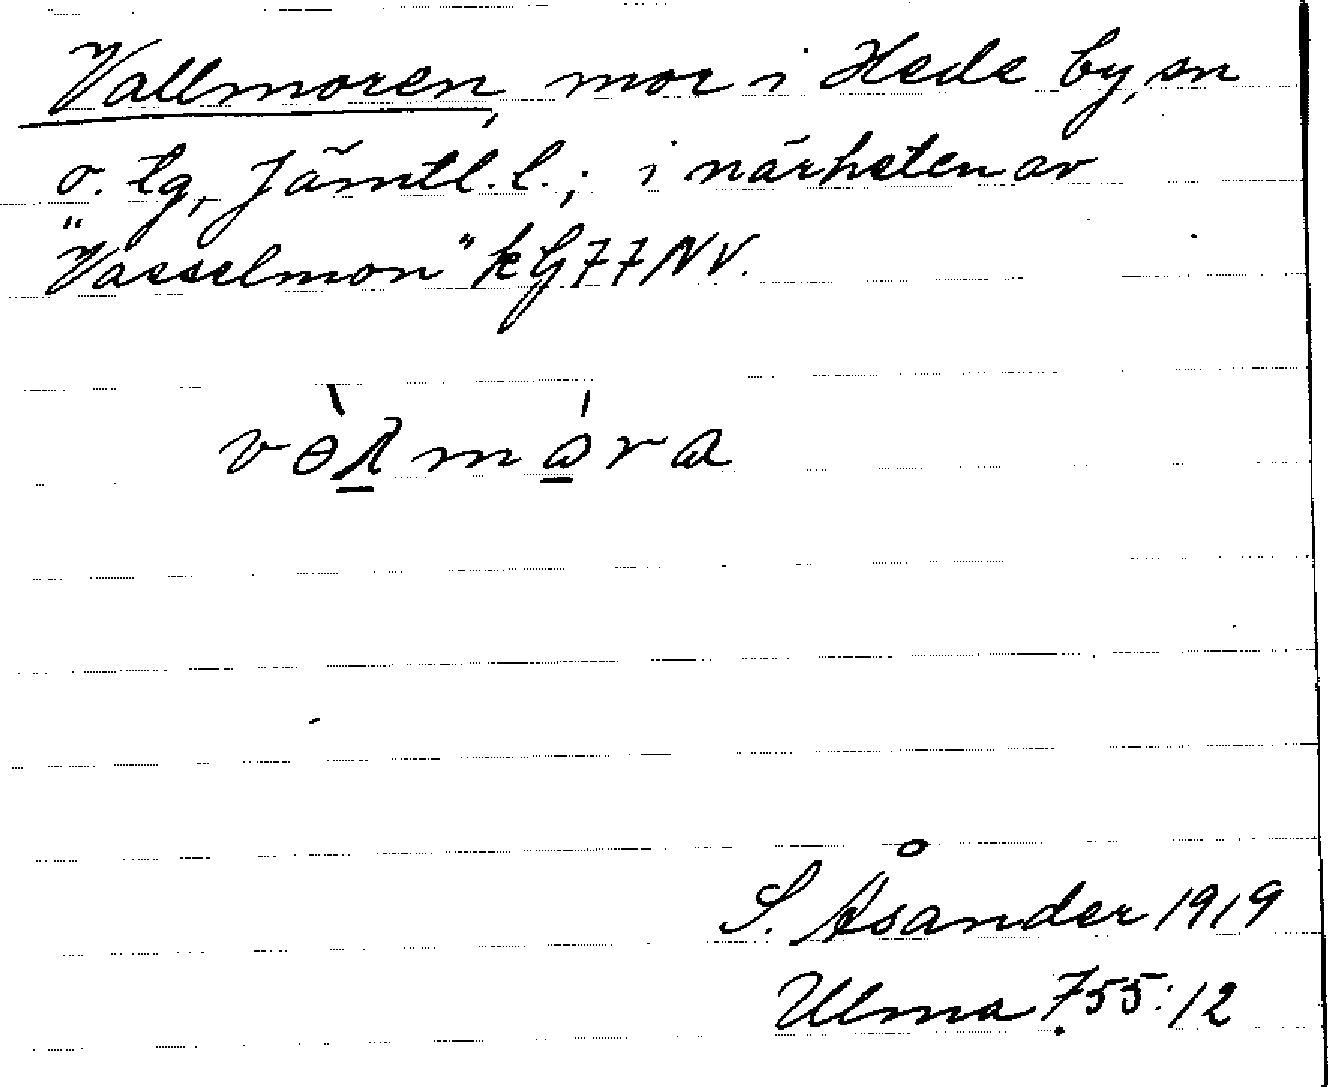 Vallmoren, mor i Hede by, sn
o. tg, Jämtl. l.; i närheten av
"Vasselmon" k G 77 NV.
vəλmɷra
S. Åsander 1919
Ulma 755:12